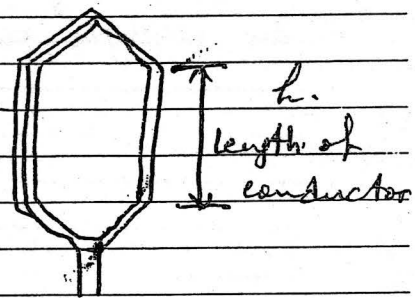 h.
length of
conductor